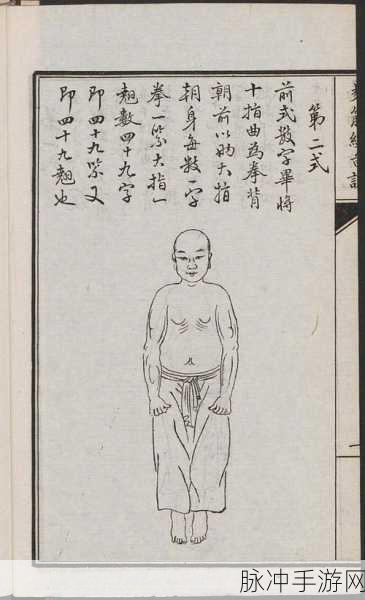 第二式
前式数字畢將
十指曲為拳背
朝前以両大指
朝身每数一字
拳一紧大指一
翹数四十九字
即四十九紧又
即四十九翹也
脉冲手游网